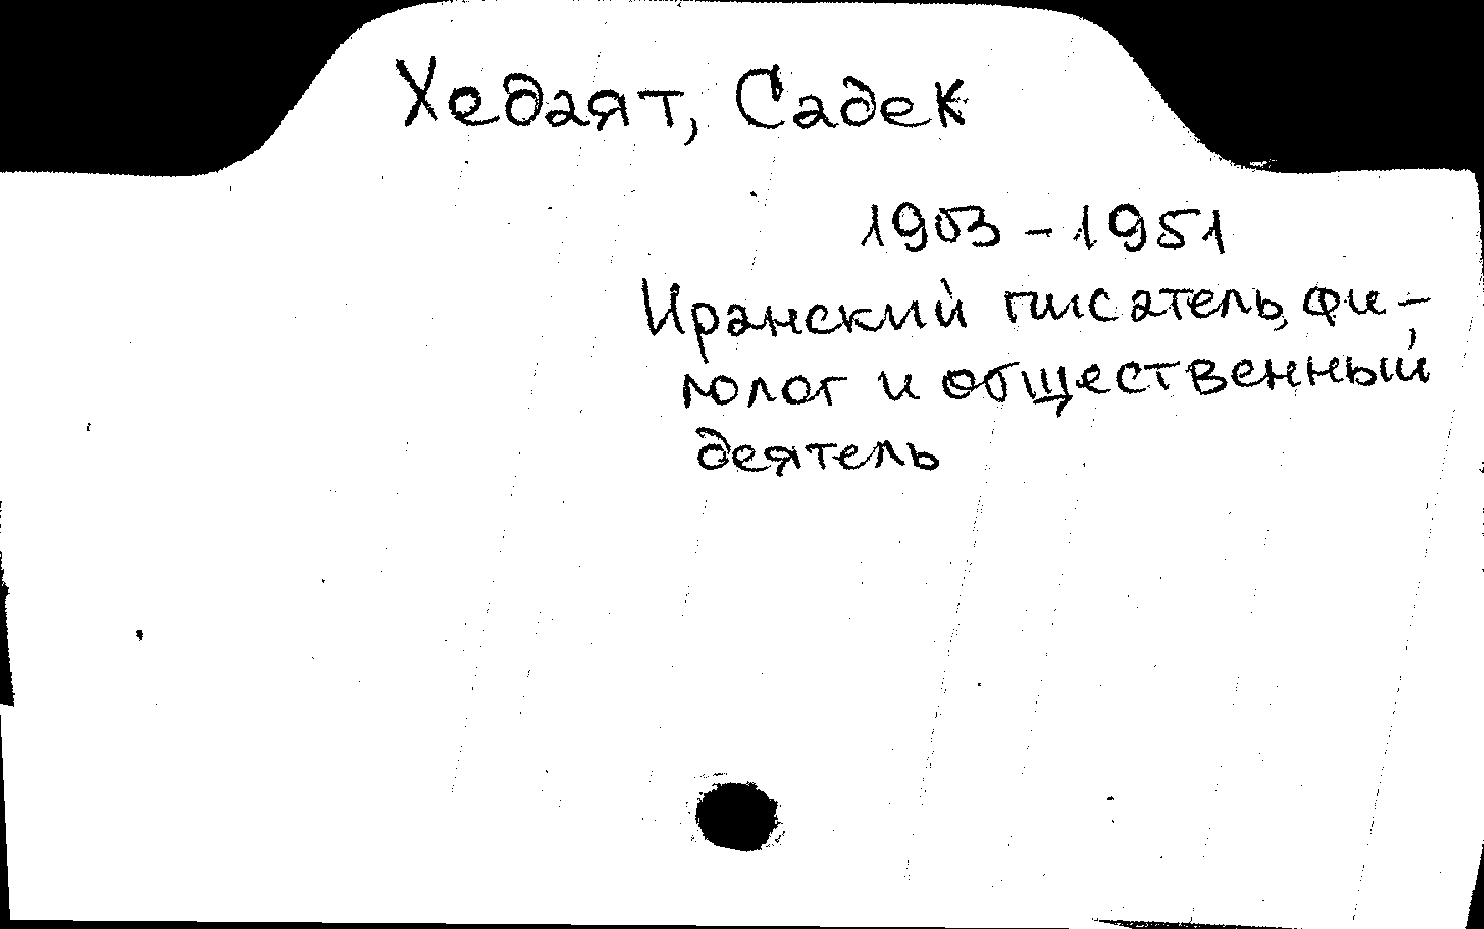 Хедаят, Садек
1903-1951
Иранский писатель, фи-
лолог и общественный
деятель